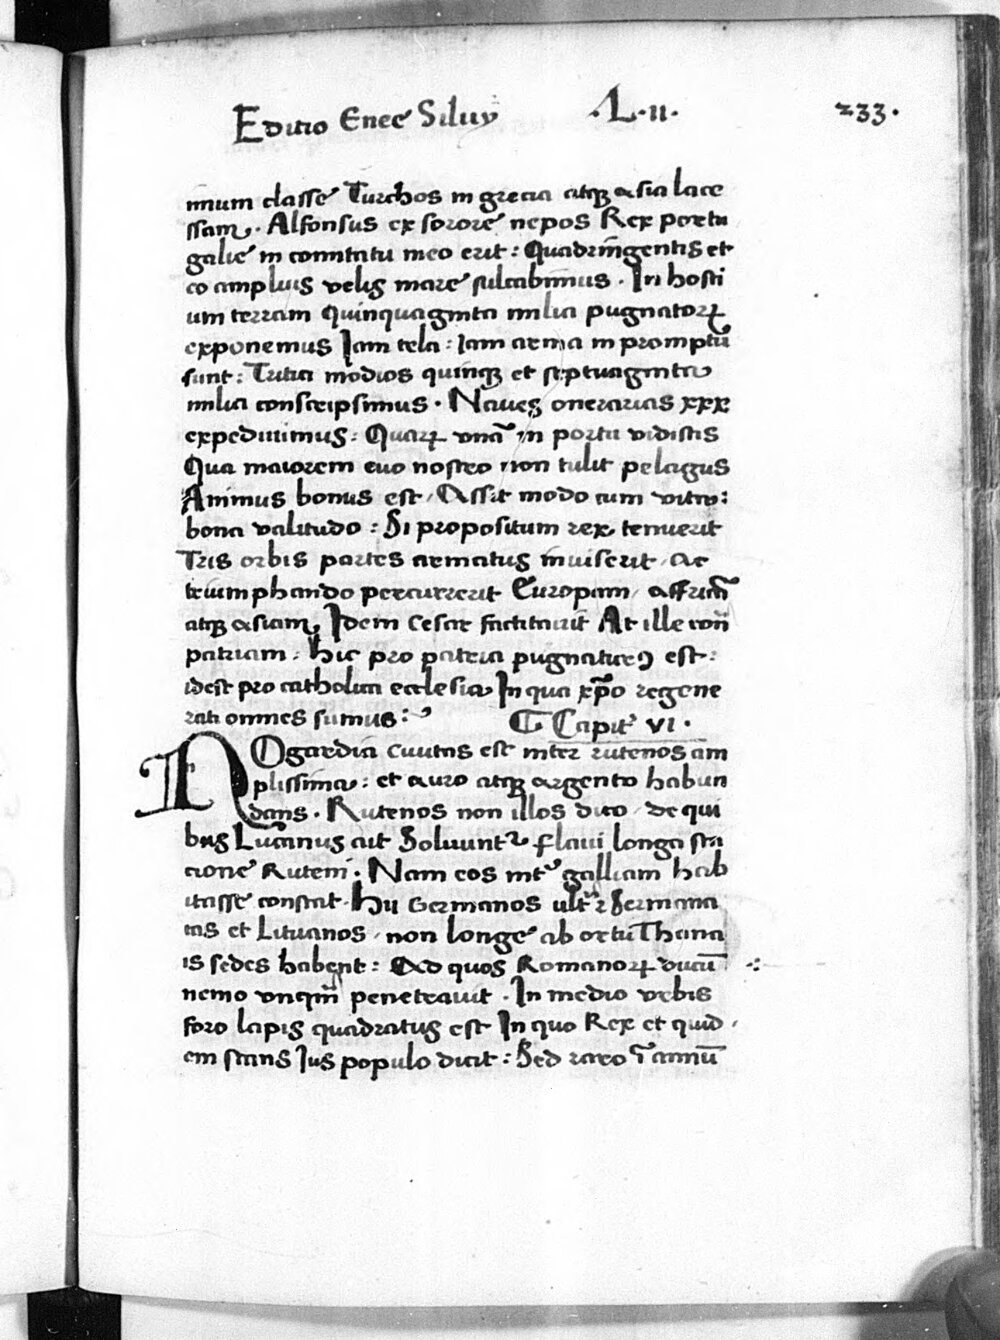 Editio Eneę Siluy .L.II. 233.
imum classe Turchos in grecia atqȝ asia lace
ssam. Alfonsus ex sororę nepos Rex portu
galię in comitatu meo erit: Quadrīngentis et
eo amplius velis mare sulcabimus. In hosti
um terram quinquaginta milia pugnatoꝝ
exponemus Iam tela: iam arma in promptū
sunt: Tritici modios quinqȝ et septuaginta
milia conscripsimus. Naues onerarias xxx
expediuimus: Quaꝝ vnā in portu vidistis
Qua maiorem euo nostro non tulit pelagus
Animus bonus est, Assit modo cum vitro:
bona valitudo: Si propositum rex tenuerit
Tris orbis partes armatus inuiserit, ac
triumphando percurrerit Europam, affricā
atqȝ asiam, Idem Cesar factitauit At ille con̄
patriam: hic pro patria pugnaturꝯ est:
idest pro catholica ecclesia In qua xp̄o regene
rati omnes sumus: ¶ Capitᵉ VI.
NOgardia ciuitas est inter rutenos am
plissima: et auro atqȝ argento habun
dans. Rutenos non illos dico, de qui
bus Lucanus ait Soluuntᵉ flaui longa sta
cione Ruteni. Nam eos intᵉ galliam hab
itasse constat. Hii Germanos ultᵉ 2 sermana
tas et Lituanos, non longe ab ortu Thana
is sedes habent: Ad quos Romanoꝝ ducū
nemo vnqm̄ penetrauit. In medio vrbis
foro lapis quadratus est In quo Rex et quid,
em stans Ius populo dicit: Sed raro ī annū